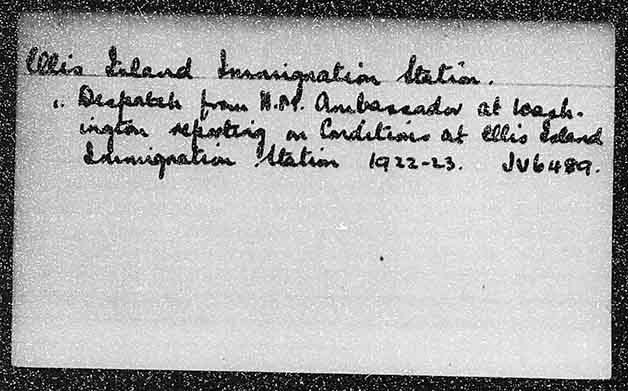 Ellis Island Immigration Station.
1. Despatch from H.M. Ambassador at Wash-
ington reporting on Conditions at Ellis Island
Immigration Station 1922-23. JV6489.